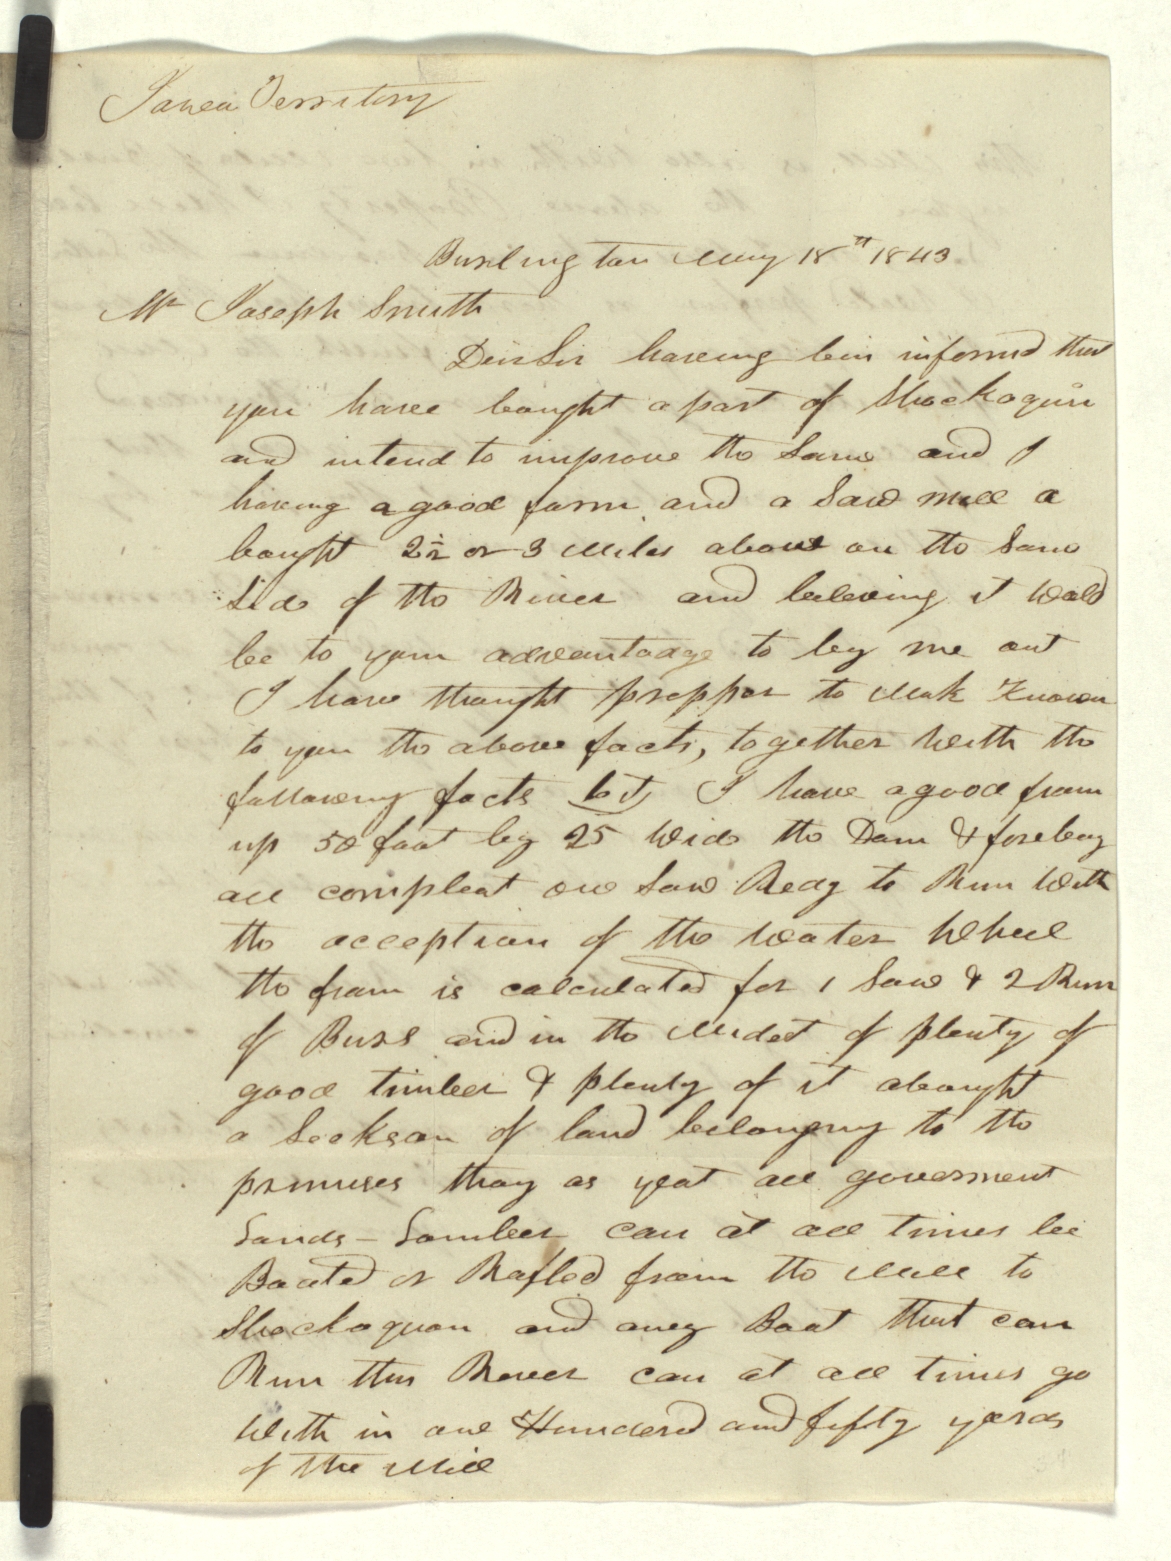 Iawea Territory
Burlington May 18th 1843
Mr Joseph Smith
Deir Sir haveing bein informd that
you have bought a part of Shockoquon
and intend to improve the Same and I
haveing a good farm and a Saw mill a
bought 2½ or 3 Miles above on the Same
Side of the River and beleveing it Wold
be to your advantadge to by me out
I have thought propper to Mak Known
to you the above facts, together With the
following facts to wit I have a good fram
up 50 foot by 25 Wide the Dam & forebay
all compleat one Saw Redy to Run With
the acception of the Water Wheel
the fram is calculated for 1 Saw & 2 Run
of Burs and in the Midst of plenty of
good timber & plenty of it abought
a Seckson of land belongeng to the
premises thay as yeat all goverment
Lands – Lomber can at all times be
Boated or Rafted from the Mill to
Shockoquon and aney Boat that can
Run this River can at all times go
With in one Hunderd and fifty yards
of the Mill